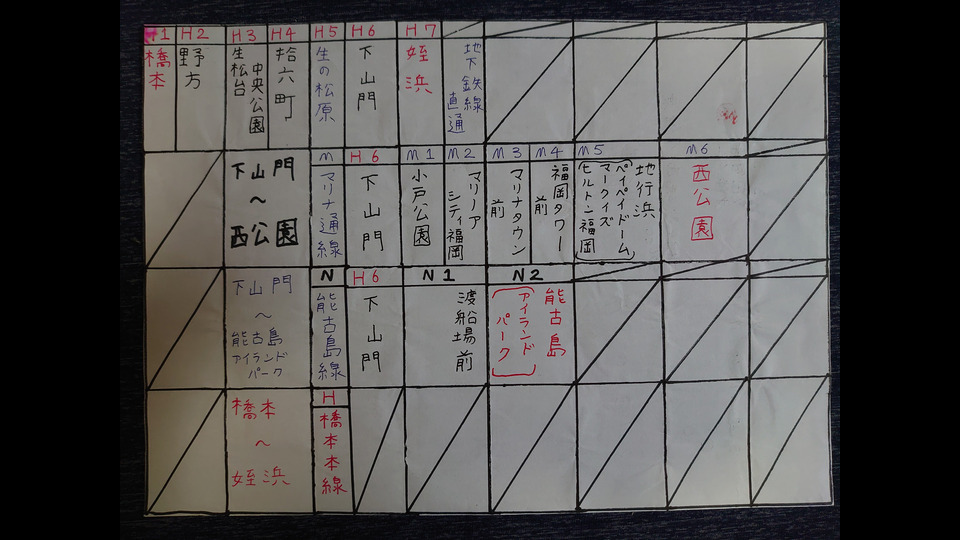 H1 H2 H3 H4 H5 H6 H7
橋本
野方
生松台
中央公園
拾六町
生の松原
下山門
姪浜
地下鉄線
直通
下山門
～
西公園
M H6 M1 M2 M3 M4 M5 M6
マリナ通線
下山門
小戸公園
マリーア
シティ福岡
マリナタウン
前
福岡タワー
前
地行浜
(ペイペイドーム
マークイズ
ヒルトン福岡)
西公園
下山門
～
能古島
アイランド
パーク
N H6 N1 N2
能古島線
下山門
渡船場前
能古島
(アイランド
パーク)
橋本
～
姪浜
H
橋本本線